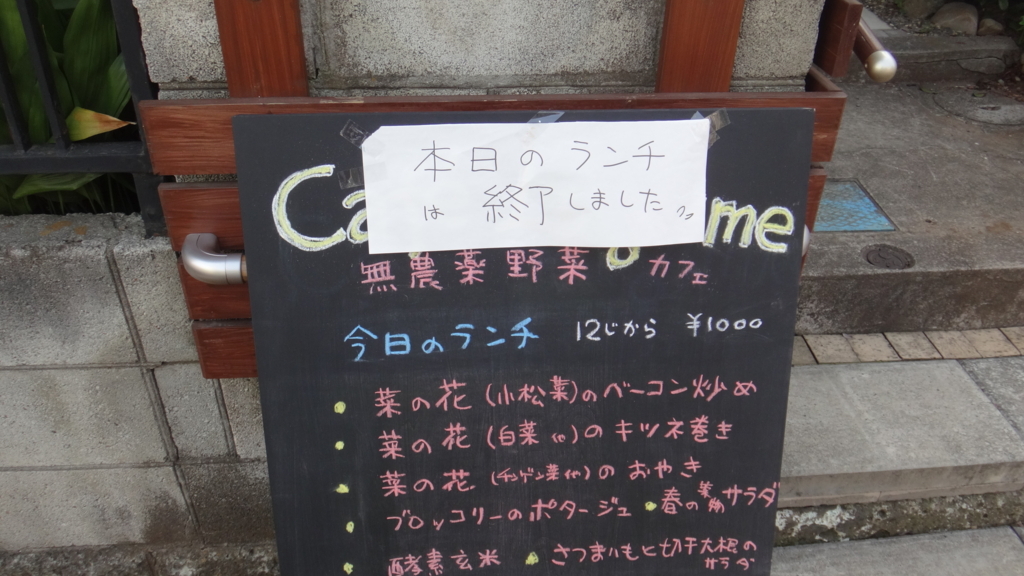 本日のランチ
は 終了しました。
Ca me
無農薬野菜 カフェ
今日のランチ 12じから ¥1000
菜の花 (小松菜)のベーコン炒め
菜の花 (白菜 )のキツネ巻き
菜の花 (チンゲン菜 )のおやき
ブロッコリーのポタージュ 春の サラダ
酵素玄米 さつまいもと切干大根の
サラダ